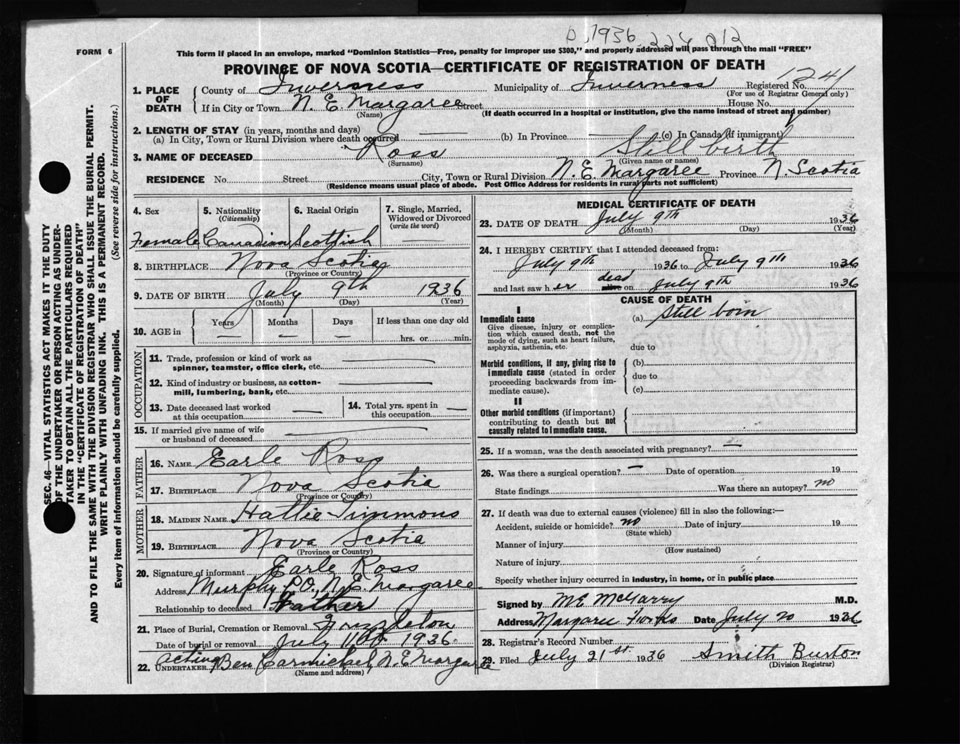 D. 1936 224 012
FORM 6
This form if placed in an envelope, marked "Dominion Statistics—Free, penalty for improper use $300," and properly addressed will pass through the mail "FREE"
PROVINCE OF NOVA SCOTIA—CERTIFICATE OF REGISTRATION OF DEATH
1. PLACE OF DEATH
County of Inverness Municipality of Inverness Registered No.
(For use of Registrar General only)
If in City or Town N. E. Margaree Street House No.
(Name) (If death occurred in a hospital or institution, give the name instead of street and number)
2. LENGTH OF STAY (in years, months and days)
(a) In City, Town or Rural Division where death occurred — (b) In Province — (c) In Canada (if immigrant)
3. NAME OF DECEASED Ross Still birth
(Surname) (Given name or names)
RESIDENCE No. Street City, Town or Rural Division N. E. Margaree Province N. Scotia
(Residence means usual place of abode. Post Office Address for residents in rural parts not sufficient)
4. Sex Female
5. Nationality (Citizenship) Canadian
6. Racial Origin Scottish
7. Single, Married, Widowed or Divorced (write the word)
8. BIRTHPLACE Nova Scotia
(Province or Country)
9. DATE OF BIRTH July 9th 1936
(Month) (Day) (Year)
10. AGE in Years Months Days If less than one day old
hrs. or min.
OCCUPATION
11. Trade, profession or kind of work as spinner, teamster, office clerk, etc. —
12. Kind of industry or business, as cotton-mill, lumbering, bank, etc. —
13. Date deceased last worked at this occupation —
14. Total yrs. spent in this occupation —
15. If married give name of wife or husband of deceased —
FATHER
16. NAME Earle Ross
17. BIRTHPLACE Nova Scotia
(Province or Country)
MOTHER
18. MAIDEN NAME Hattie Timmons
19. BIRTHPLACE Nova Scotia
(Province or Country)
20. Signature of informant Earle Ross
Address Murphy P.O., N. E. Margaree
Relationship to deceased Father
21. Place of Burial, Cremation or Removal Frizzleton
Date of burial or removal July 11th 1936
22. acting UNDERTAKER Ben Carmichael, N. E. Margaree
(Name and address)
MEDICAL CERTIFICATE OF DEATH
23. DATE OF DEATH July 9th 1936
(Month) (Day) (Year)
24. I HEREBY CERTIFY that I attended deceased from:
July 9th 1936 to July 9th 1936
and last saw her dead alive on July 9th 1936
CAUSE OF DEATH
I
Immediate cause (a) Still born
Give disease, injury or complication which caused death, not the mode of dying, such as heart failure, asphyxia, asthenia, etc.
due to
Morbid conditions, if any, giving rise to immediate cause (stated in order proceeding backwards from immediate cause).
(b)
due to
(c)
II
Other morbid conditions (if important) contributing to death but not causally related to immediate cause.
25. If a woman, was the death associated with pregnancy? —
26. Was there a surgical operation? — Date of operation 19
State findings Was there an autopsy? no
27. If death was due to external causes (violence) fill in also the following:—
Accident, suicide or homicide? no Date of injury 19
(State which)
Manner of injury
(How sustained)
Nature of injury
Specify whether injury occurred in industry, in home, or in public place
Signed by M E McGarry M.D.
Address Margaree Forks Date July 20 1936
28. Registrar's Record Number
29. Filed July 21st 1936 Smith Burton
(Division Registrar)
SEC. 46—VITAL STATISTICS ACT MAKES IT THE DUTY
OF THE UNDERTAKER OR PERSON ACTING AS UNDER-
TAKER TO OBTAIN ALL THE PARTICULARS REQUIRED
IN THE "CERTIFICATE OF REGISTRATION OF DEATH"
AND TO FILE THE SAME WITH THE DIVISION REGISTRAR WHO SHALL ISSUE THE BURIAL PERMIT.
WRITE PLAINLY WITH UNFADING INK. THIS IS A PERMANENT RECORD.
Every item of information should be carefully supplied. (See reverse side for instructions.)